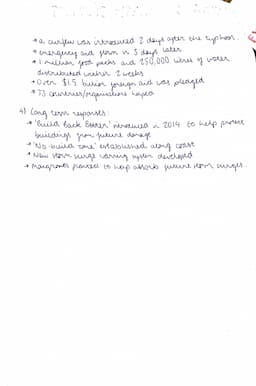 → a curfew was introduced 2 days after the typhoon
→ emergency aid flown in 3 days later
→ 1 million food packs and 250,000 litres of water
distributed within 2 weeks
→ Over $1.5 billion foreign aid was pledged
→ 33 countries/organisations helped
4) Long term responses:
→ 'Build Back Better' introduced in 2014 to help protect
buildings from future damage
→ 'No build zone' established along coast
→ New storm surge warning system developed
→ Mangroves planted to help absorb future storm surges